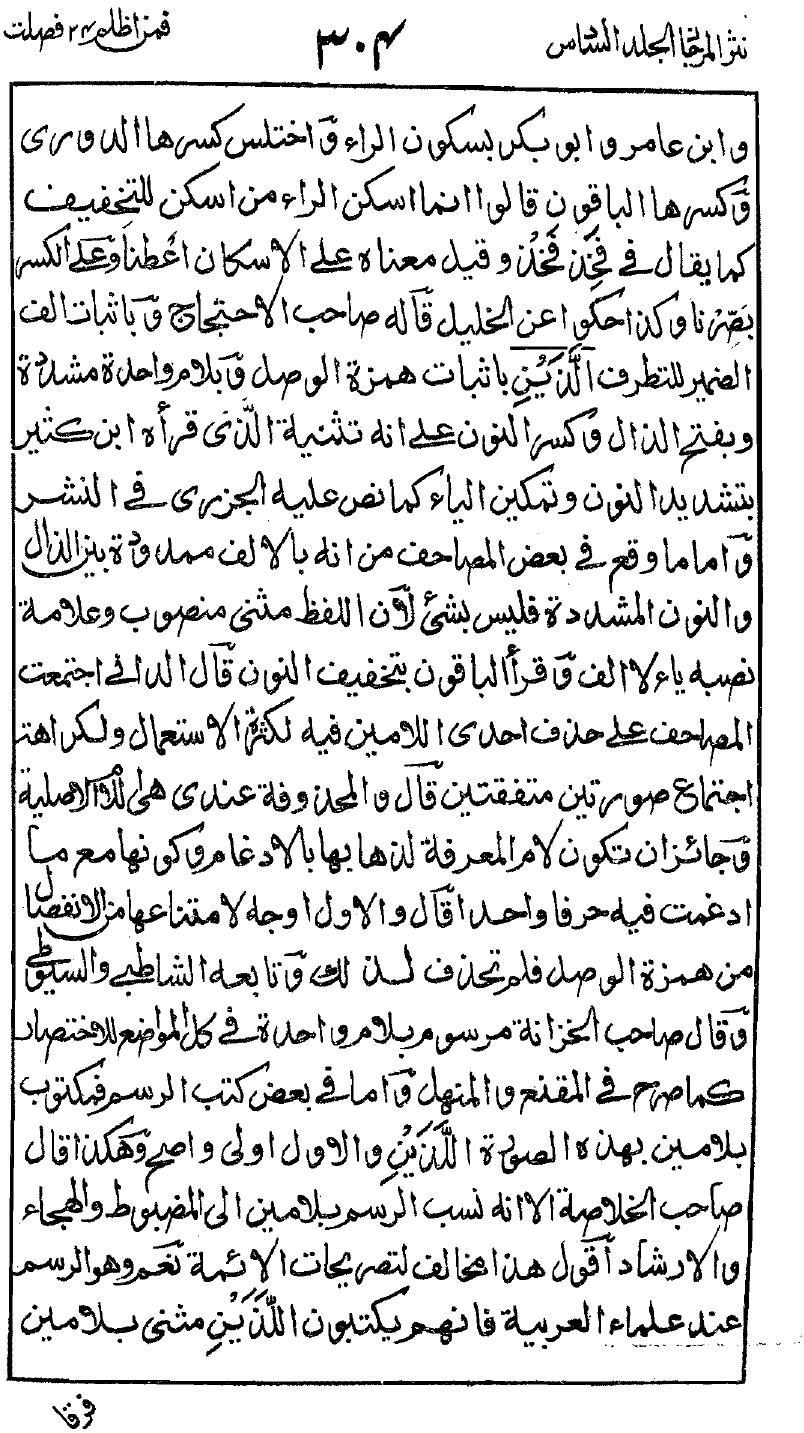 نثر المرجان الجلد السادس
٣٠٤
فمن اظلم ٢٤ فصلت
وابن عامر وابو بكر بسكون الراء وَاختلس كسرها الدورى
وَكسرها الباقون قالوا انما اسكن الراء من اسكن للتخفيف
كما يقال فى فَخِذ فَخْذ وقيل معناه على الاسكان اَعْطِنا وَعلى الكسر
بَصِّرنا وكذا حكوا عن الخليل قاله صاحب الاحتجاج وَباثبات الف
الضمير للتطرف الَّذَيْنِ باثبات همزة الوصل وَبلام واحدة مشددة
وبفتح الذال وَكسر النون على انه تثنية الَّذى قرأه ابن كثير
بتشديد النون وتمكين الياء كما نص عليه الجزرى فى النشر
وَاما ما وقع فى بعض المصاحف من انه بالالف ممدودة بين الذال
والنون المشددة فليس بشئ لاَن اللفظ مثنى منصوب وعلامة
نصبه ياء لا الف وَقرأ الباقون بتخفيف النون قَال الدانى اجتمعت
المصاحف على حذف احدى اللامين فيه لكثرة الاستعمال ولكراهة
اجتماع صورتين متفقتين قَال والمحذوفة عندى هى اللام الاصلية
وَجائز ان تكون لام المعرفة لذهابها بالادغام وَكونها مع ما
ادغمت فيه حرفا واحدا قَال والاول اوجه لامتناعها من الانفصال
من همزة الوصل فلم تحذف لذلك وَتابعه الشاطبى والسيوطى
وَقال صاحب الخزانة مرسوم بلام واحدة فى كل المواضع للاختصار
كما صرح فى المقنع والمنهل وَاما فى بعض كتب الرسم فمكتوب
بلامين بهذه الصورة اللَّذَيْنِ والاول اولى واصح وَهكذا قال
صاحب الخلاصة الا انه نسب الرسم بلامين الى المضبوط والهجاء
والارشاد اَقول هذا مخالف لتصريحات الائمة نَعم وهو الرسم
عند علماء العربية فانهم يكتبون اللَّذَيْنِ مثنى بلامين
فرقا